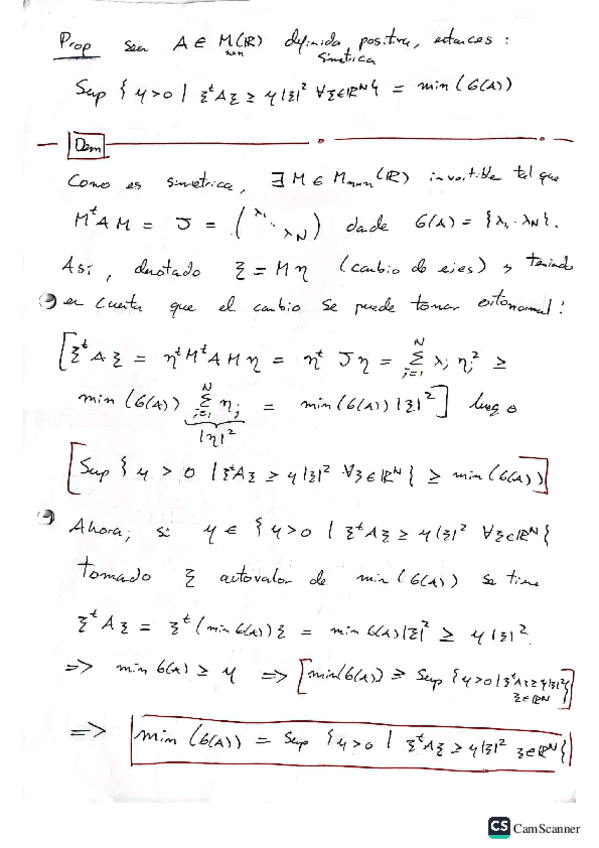 Prop sea A ∈ M(ℝ) definida positiva, entonces :
nxn simetrica
Sup { μ>0 | ξᵗAξ ≥ μ|ξ|² ∀ξ∈ℝᴺ } = min(σ(A))
Dem
Como es simetrica, ∃ M ∈ Mₙₓₙ(ℝ) invertible tal que
MᵗAM = J = (λ₁ ⋱ λN) donde σ(A) = {λ₁ ⋯ λN}.
Así, denotado ξ = Mη (cambio de ejes) y teniendo
en cuenta que el cambio se puede tomar ortonormal:
[ξᵗAξ = ηᵗMᵗAMη = ηᵗJη = Σⱼ₌₁ᴺ λⱼ ηⱼ² ≥
min(σ(A)) Σⱼ₌₁ᴺ ηⱼ = min(σ(A))|ξ|²] luego
|η|²
[Sup { μ > 0 | ξᵗAξ ≥ μ|ξ|² ∀ξ∈ℝᴺ } ≥ min(σ(A))]
Ahora, si μ ∈ { μ>0 | ξᵗAξ ≥ μ|ξ|² ∀ξ∈ℝᴺ }
tomado ξ autovalor de min(σ(A)) se tiene
ξᵗAξ = ξᵗ(min σ(A))ξ = min σ(A)|ξ|² ≥ μ|ξ|².
=> min σ(A) ≥ μ => [min(σ(A)) ≥ Sup {μ>0 | ξᵗAξ ≥ μ|ξ|²
ξ∈ℝᴺ }]
=> min(σ(A)) = Sup { μ>0 | ξᵗAξ ≥ μ|ξ|² ξ∈ℝᴺ }
CS CamScanner